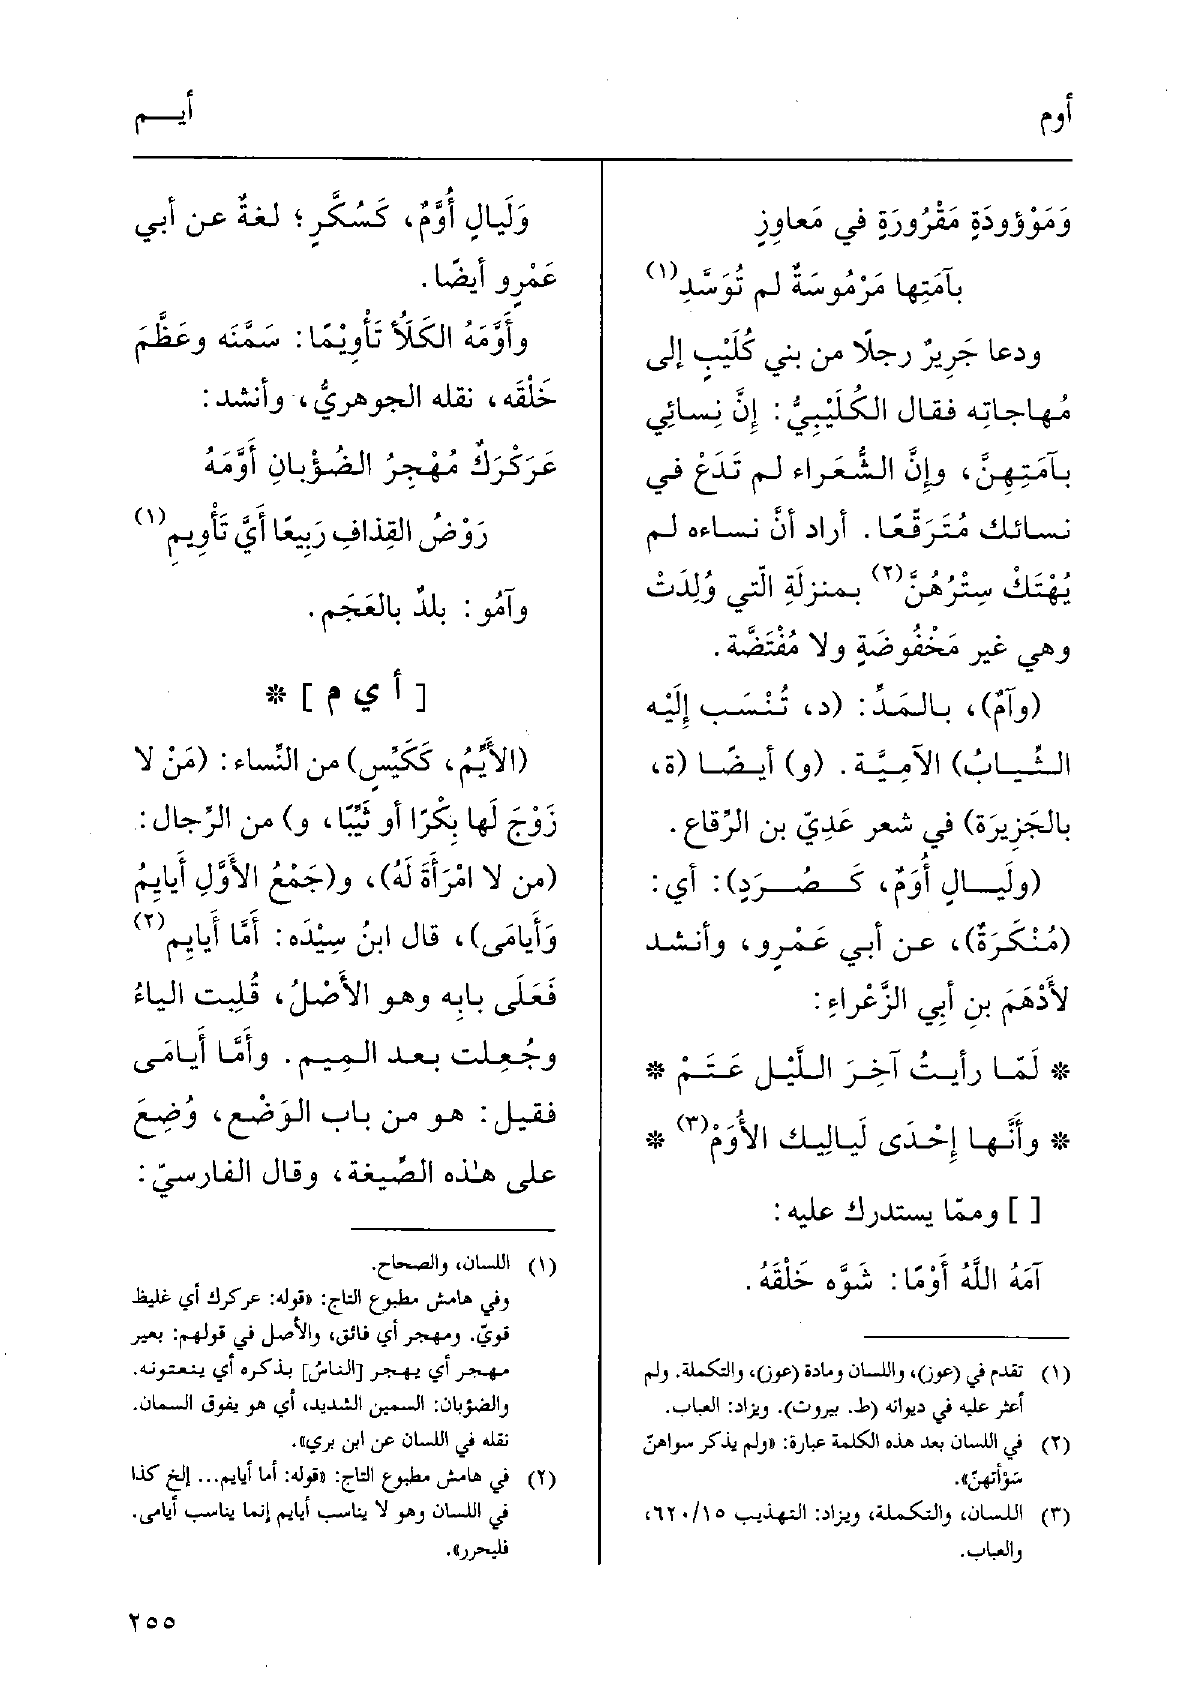 أوم
أيـــم
وَمَوْؤودَةٍ مَقْرُورَةٍ في مَعاوِزٍ
بآمَتِها مَرْمُوسَةٌ لم تُوَسَّدِ(١)
ودعا جَرِيرٌ رجلًا من بني كُلَيْبٍ إلى
مُهاجاتِه فقال الكُلَيْبِيُّ: إِنَّ نِسائِي
بآمَتِهِنَّ، وإِنَّ الشُّعَراء لم تَدَعْ في
نسائك مُتَرَقَّعًا. أراد أنَّ نساءه لم
يُهْتَكْ سِتْرُهُنَّ(٢) بمنزلَةِ الّتي وُلِدَتْ
وهي غير مَخْفُوضَةٍ ولا مُفْتَضَّة.
(وآمُ)، بالمَدِّ: (د، تُنْسَب إلَيْه
الثِّيابُ) الآمِيَّة. (و) أيضًا (ة،
بالجَزِيرَة) في شعر عَدِيّ بن الرِّقاع.
(وليـالٍ أُوَمٌ، كَـصُـرَدٍ): أي:
(مُنْكَرَةٌ)، عن أبي عَمْرٍو، وأنشد
لأَدْهَمَ بنِ أبي الزَّعْراءِ:
* لَمّا رأيتُ آخِرَ اللَّيْلِ عَتَمْ *
* وأنَّها إحْدَى لَياليك الأُوَمْ(٣) *
[ ] وممّا يستدرك عليه:
آمَهُ اللَّهُ أَوْمًا: شَوَّه خَلْقَهُ.
(١) تقدم في (عوز)، واللسان ومادة (عوز)، والتكملة. ولم
أعثر عليه في ديوانه (ط. بيروت). ويزاد: العباب.
(٢) في اللسان بعد هذه الكلمة عبارة: «ولم يذكر سواهنّ
سَوْأتهنّ».
(٣) اللسان، والتكملة، ويزاد: التهذيب ٦٢٠/١٥،
والعباب.
وَلَيالٍ أُوَّمٌ، كَسُكَّرٍ؛ لغةٌ عن أبي
عَمْرٍو أيضًا.
وأَوَّمَهُ الكَلَأُ تَأْوِيْمًا: سَمَّنَه وعَظَّمَ
خَلْقَه، نقله الجوهريُّ، وأنشد:
عَرَكْرَكٌ مُهْجِرُ الضُؤْبانِ أَوَّمَهُ
رَوْضُ القِذافِ رَبِيعًا أيَّ تَأْوِيمِ(١)
وآمُو: بلدٌ بالعَجَم.
[ أ ي م ] *
(الأَيِّمُ، كَكَيِّسٍ) من النِّساء: (مَنْ لا
زَوْجَ لَها بِكْرًا أو ثَيِّبًا، و) من الرِّجال:
(من لا امْرَأَةَ لَهُ)، و(جَمْعُ الأَوَّلِ أَيايِمُ
وَأَيامَى)، قال ابنُ سِيْدَه: أمَّا أَيايِم(٢)
فَعَلَى بابِه وهو الأَصْلُ، قُلِبت الياءُ
وجُعِلت بعد الميم. وأمَّا أَيامَى
فقيل: هو من باب الوَضْع، وُضِعَ
على هٰذه الصِّيغة، وقال الفارسيّ:
(١) اللسان، والصحاح.
وفي هامش مطبوع التاج: «قوله: عركرك أي غليظ
قويّ. ومهجر أي فائق، والأصل في قولهم: بعير
مهجر أي يهجر [الناسُ] بذكره أي ينعتونه.
والضؤبان: السمين الشديد، أي هو يفوق السمان.
نقله في اللسان عن ابن بري».
(٢) في هامش مطبوع التاج: «قوله: أما أيايم... إلخ كذا
في اللسان وهو لا يناسب أيايم إنما يناسب أيامى.
فليحرر».
٢٥٥